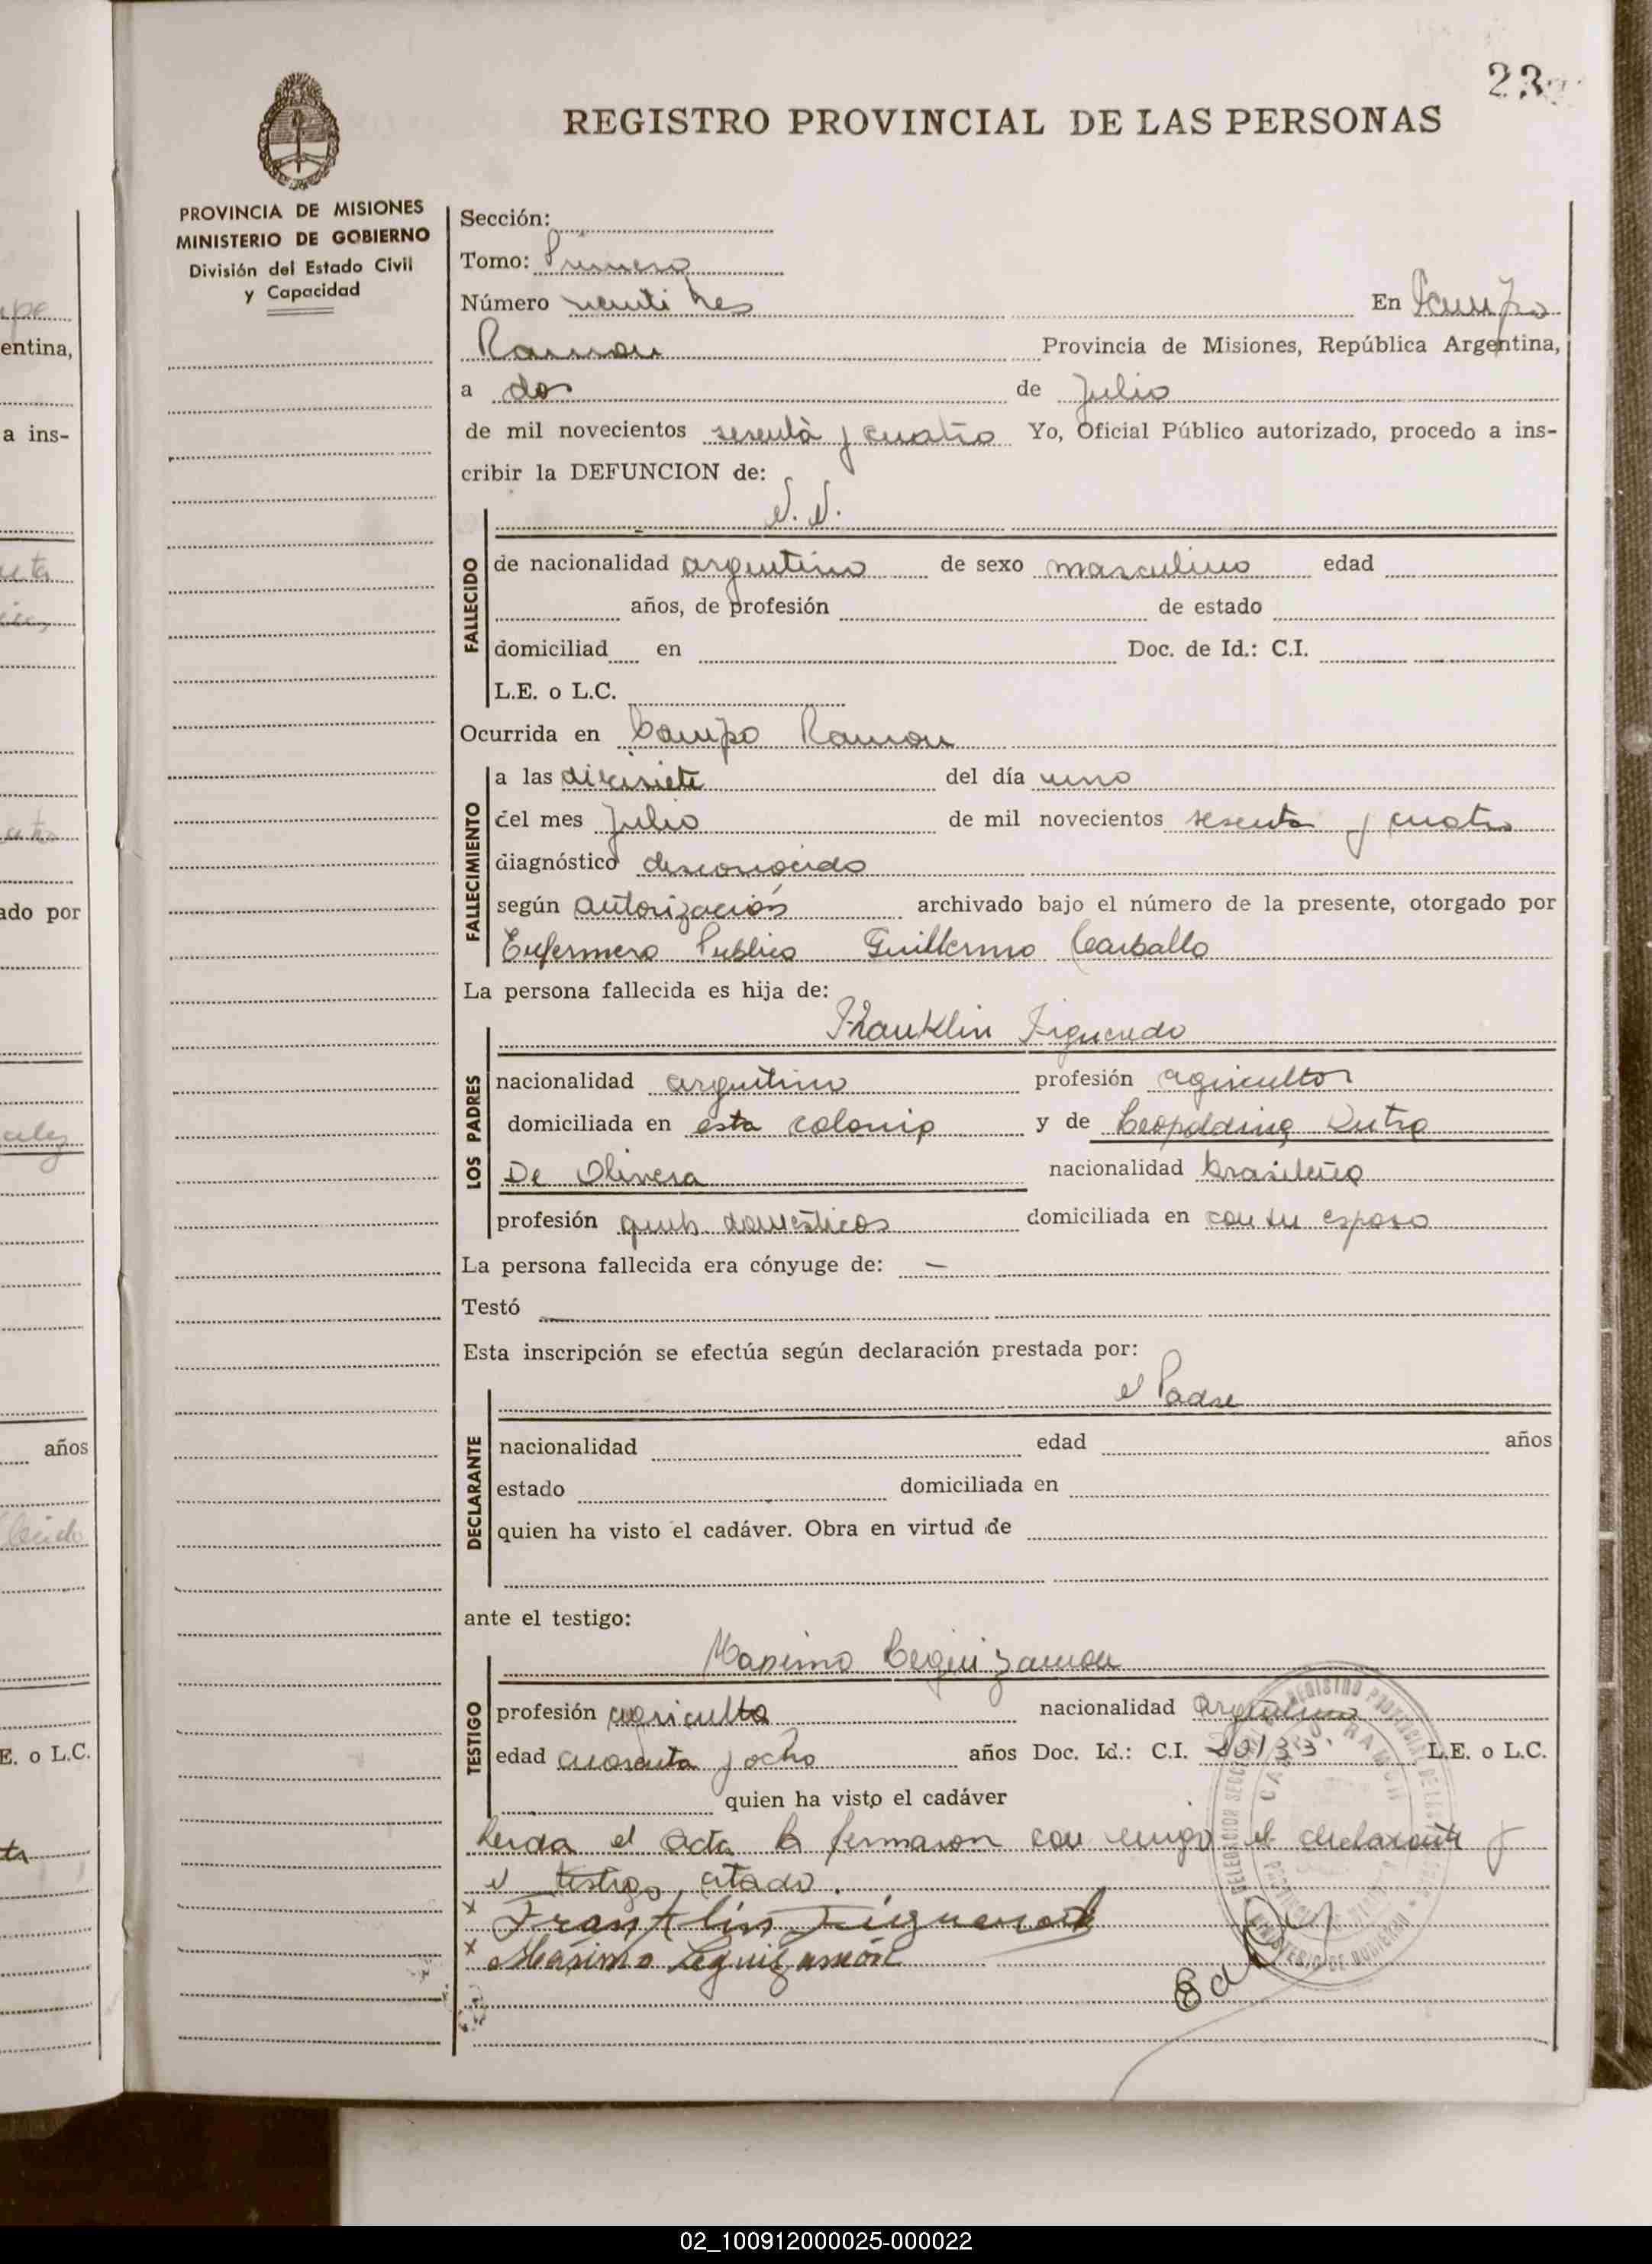 23
REGISTRO PROVINCIAL DE LAS PERSONAS
PROVINCIA DE MISIONES
MINISTERIO DE GOBIERNO
División del Estado Civil
y Capacidad
Sección:
Tomo: Primero
Número veinti tres En Campo
Ramon Provincia de Misiones, República Argentina,
a dos de Julio
de mil novecientos sesenta y cuatro Yo, Oficial Público autorizado, procedo a ins-
cribir la DEFUNCION de:
N. N.
FALLECIDO
de nacionalidad argentino de sexo masculino edad
años, de profesión de estado
domiciliad en Doc. de Id.: C.I.
L.E. o L.C.
Ocurrida en Campo Ramon
FALLECIMIENTO
a las diecisiete del día uno
del mes Julio de mil novecientos sesenta y cuatro
diagnóstico desconocido
según autorización archivado bajo el número de la presente, otorgado por
Enfermero Publico Guillermo Carballo
La persona fallecida es hija de:
Franklin Figueredo
LOS PADRES
nacionalidad argentino profesión agricultor
domiciliada en esta colonia y de Leopoldina Dutra
De Olivera nacionalidad brasileña
profesión queh. domésticos domiciliada en con su esposo
La persona fallecida era cónyuge de: —
Testó
Esta inscripción se efectúa según declaración prestada por:
el Padre
DECLARANTE
nacionalidad edad años
estado domiciliada en
quien ha visto el cadáver. Obra en virtud de
ante el testigo:
Maximo Leguizamon
TESTIGO
profesión agriculto nacionalidad argentino
edad cuarenta y ocho años Doc. Id.: C.I. L.E. o L.C.
quien ha visto el cadáver
Leida el acta la firmaron con migo el declarante y
el testigo citado.
x Franklin Figueredo
x Maximo Leguizamón
CAMPO RAMON
MINISTERIO DE GOBIERNO
entina,
a ins-
ado por
años
E. o L.C.
02_100912000025-000022